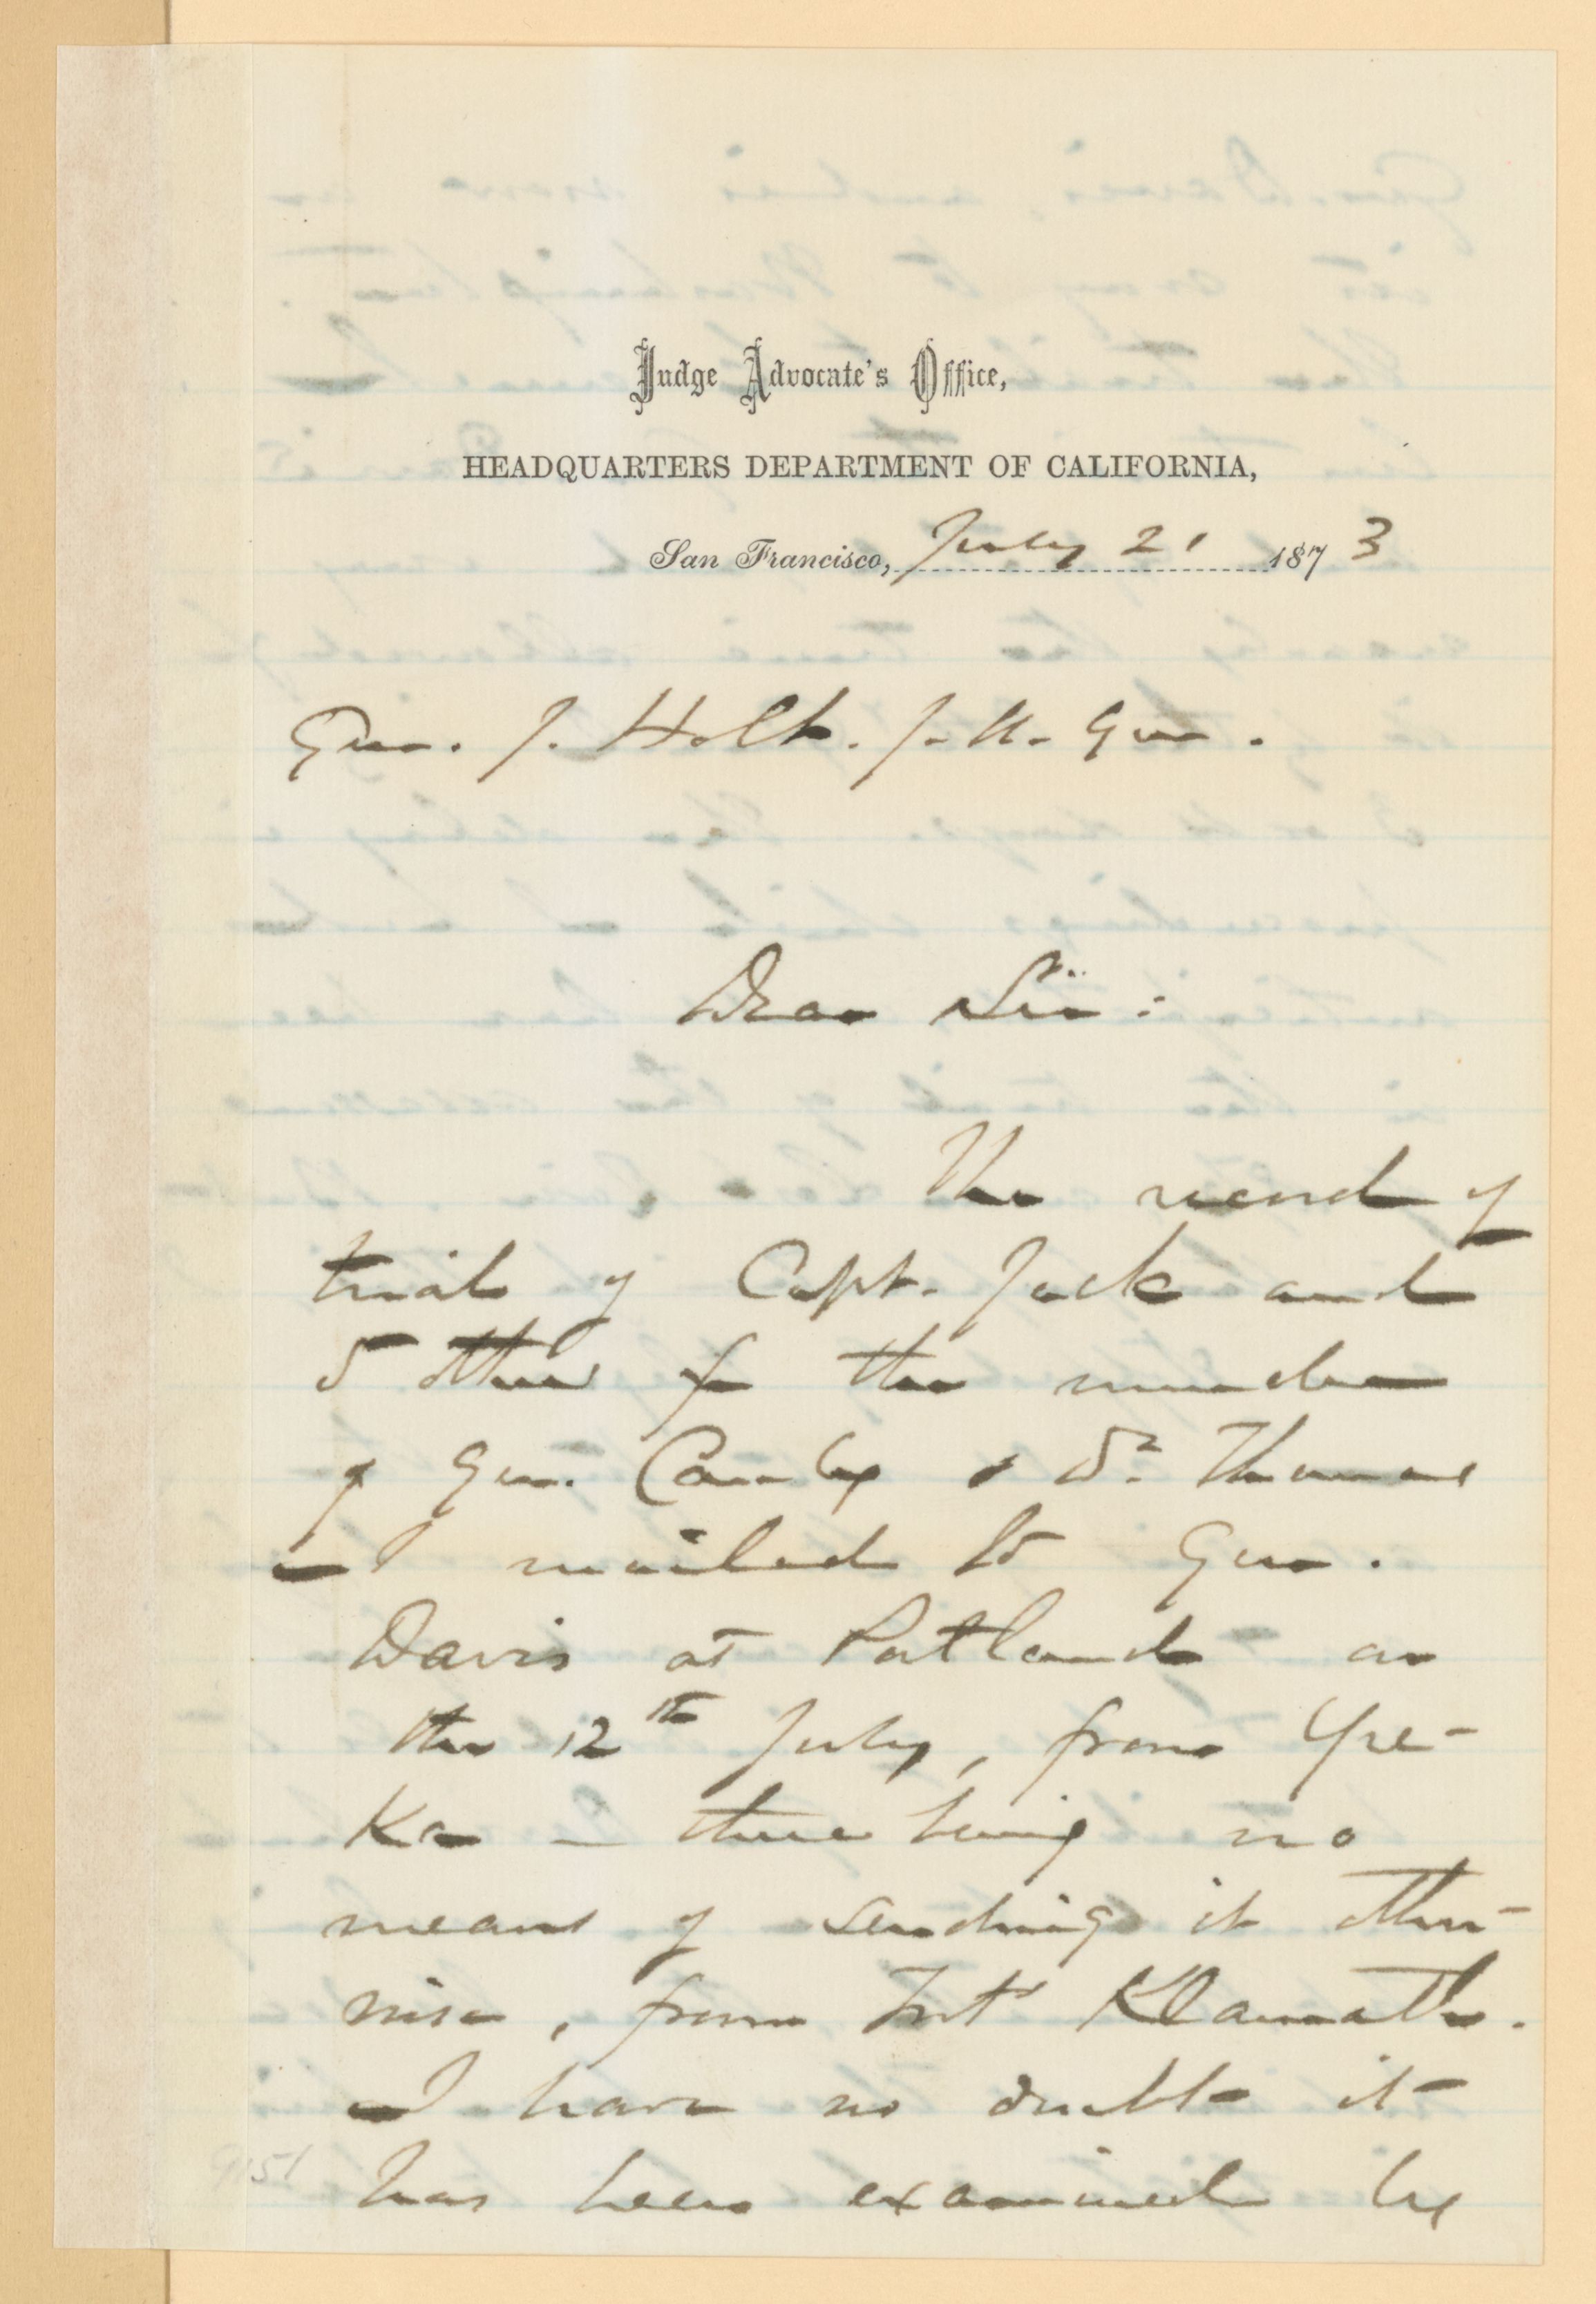 Judge Advocate's Office,
HEADQUARTERS DEPARTMENT OF CALIFORNIA,
San Francisco, July 21 1873
Gen. J. Holt. J. A. Gen.
Dear Sir:
The record of
trial of Capt. Jack and
5 others for the murder
of Gen. Canby & Dr. Thomas
I mailed to Gen.
Davis at Portland on
the 12th July, from Yre-
Ka – there being no
means of sending it other-
wise, from Fort Klamath.
I have no doubt it
has been examined by
9151